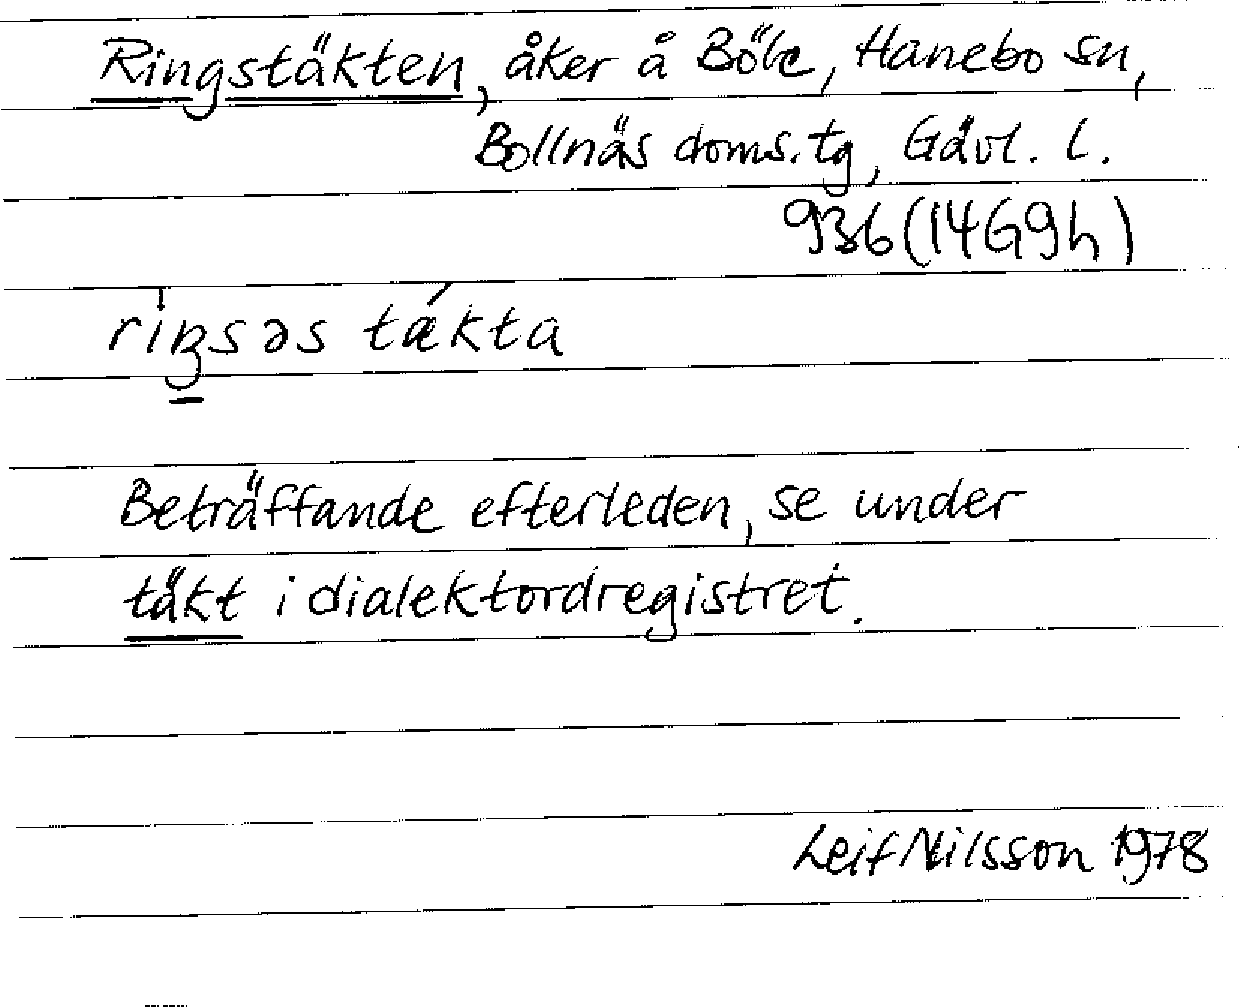 Ringstäkten, åker å Böle, Hanebo sn,
Bollnäs doms.tg, Gävl. l.
936 (14G9h)
täkta
Beträffande efterleden, se under
täkt i dialektordregistret.
Leif Nilsson 1978